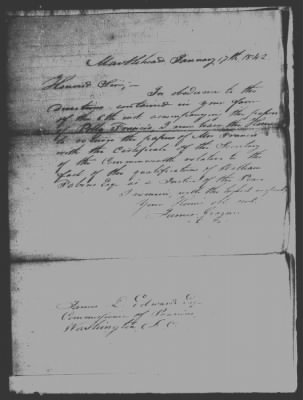 Marblehead January 17th 1842
Honored Sir;—
In obedience to the
directions contained in your favor
of the 6th inst. accompanying the papers
of I now have the
to return the papers of Mrs Francis
with the Certificate of the Secretary
of the Commonwealth relative to the
fact of the qualification of
Esq as a Justice of the Peace
I remain, with the
Your
James
James L. Edwards Esq
Commissioner of Pensions
Washington D. C.